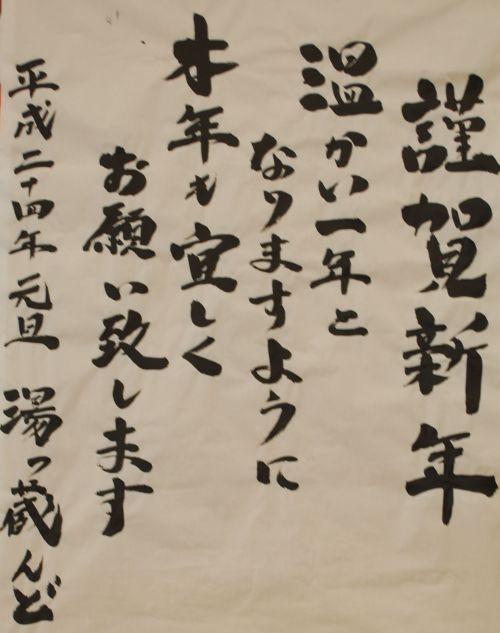 謹賀新年
温かい一年と
なりますように
本年も宜しく
お願い致します
平成二十四年 元旦 湯っ蔵んど